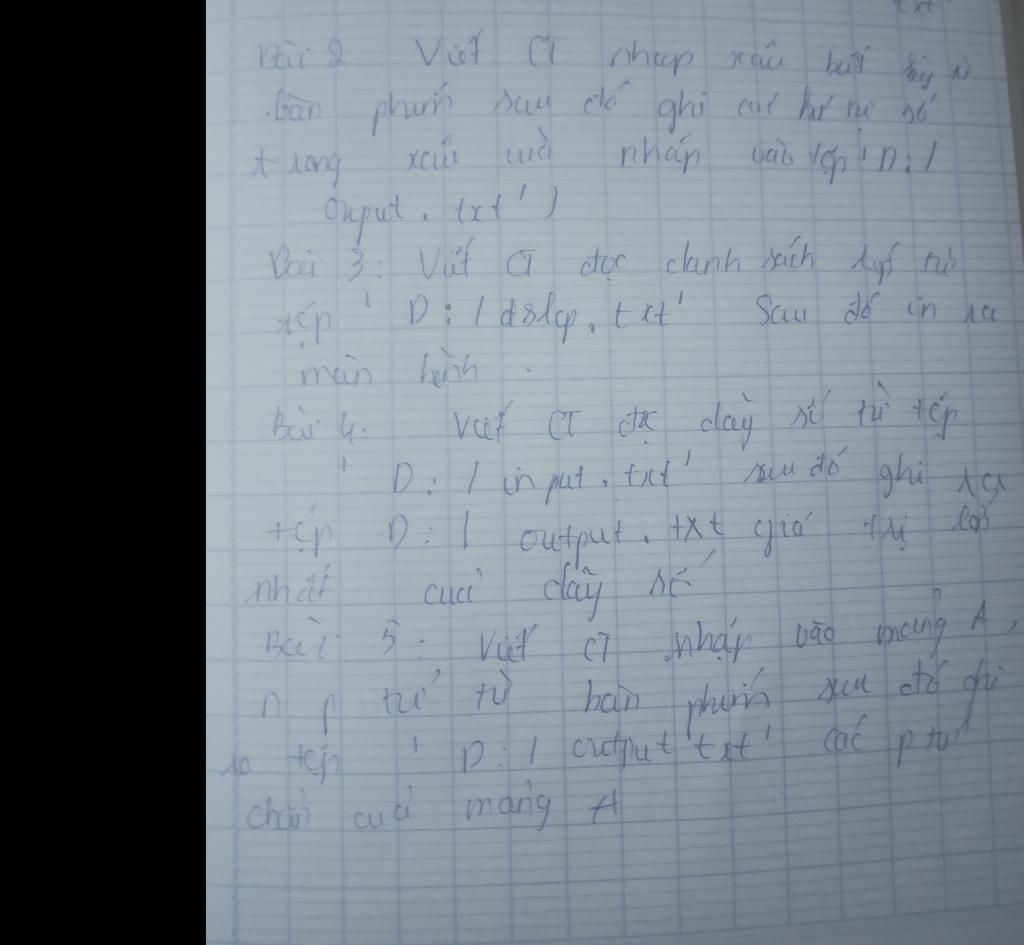 txt
Bài 2. Viết CT nhập xâu bất kỳ từ
bàn phím sau đó ghi các kí tự số
trong xâu vừa nhập vào tệp 'D:/
Ouput.txt')
Bài 3: Viết CT đọc danh sách lớp từ
tệp 'D:/dslop.txt' Sau đó in ra
màn hình.
Bài 4: Viết CT đọc dãy số từ tệp
'D:/input.txt' sau đó ghi ra
tệp D:/output.txt giá trị lớn
nhất của dãy số
Bài 5: Viết CT nhập vào mảng A,
n p tử từ bàn phím sau đó ghi
ra tệp 'D:/output txt' các p tử
chẵn của mảng A